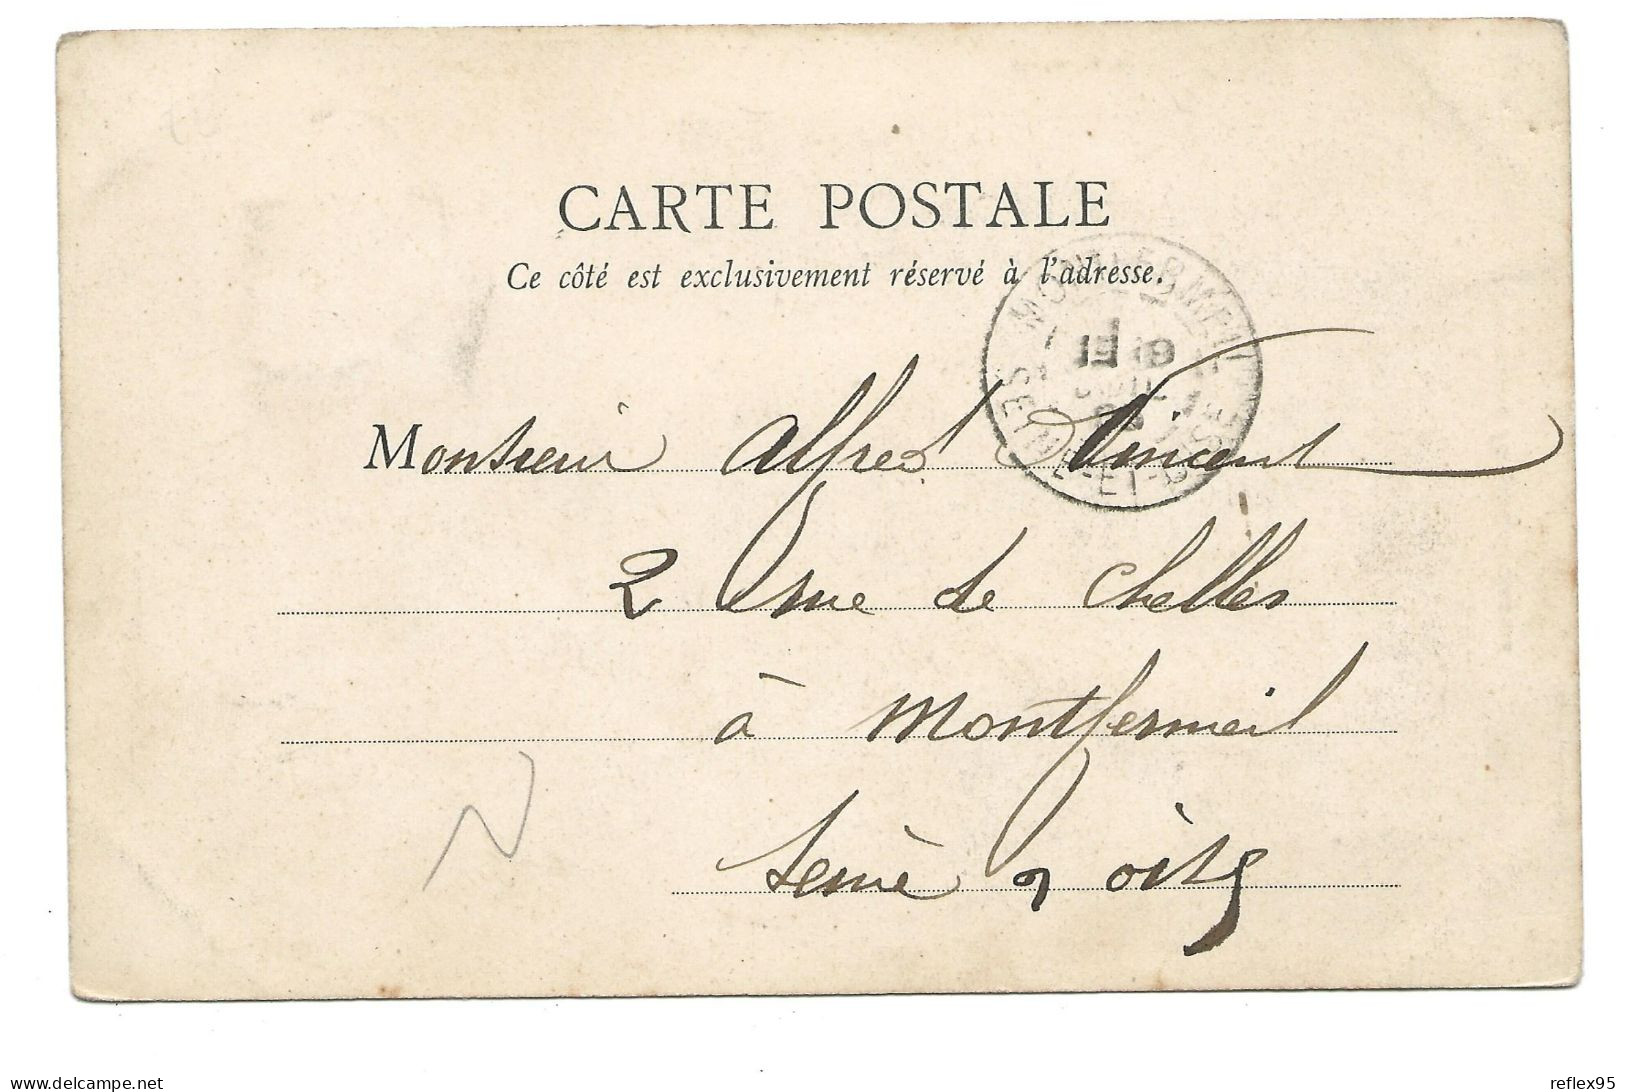 CARTE POSTALE
Ce côté est exclusivement réservé à l'adresse.
MONTFERMEIL
SEINE-ET-OISE
Monsieur Alfred Vincent
2 rue de Chelles
à Montfermeil
Seine & Oise
www.delcampe.net
reflex95